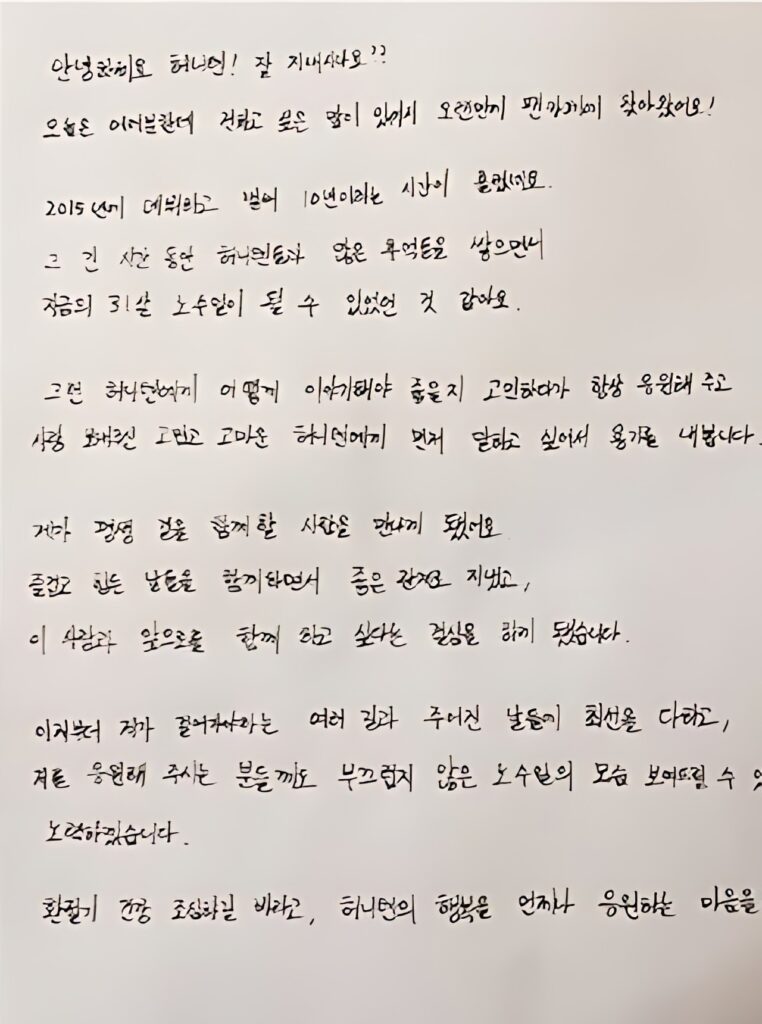 안녕하세요 허니언! 잘 지내시나요??
오늘은 여러분한테 전하고 싶은 말이 있어서 오랜만에 팬카페에 찾아왔어요!
2015년에 데뷔하고 벌써 10년이라는 시간이 흘렀네요.
그 긴 시간 동안 허니언들과 많은 추억들을 쌓으면서
지금의 31살 노수일이 될 수 있었던 것 같아요.
그런 허니언에게 어떻게 이야기해야 좋을지 고민하다가 항상 응원해 주고
사랑 보내주신 고맙고 고마운 허니언에게 먼저 말하고 싶어서 용기를 내봅니다.
제가 평생 길을 함께 할 사람을 만나게 됐어요
즐겁고 힘든 날들을 함께하면서 좋은 관계로 지냈고,
이 사람과 앞으로를 함께 하고 싶다는 결심을 하게 됐습니다.
이제부터 제가 걸어가야하는 여러 길과 주어진 날들에 최선을 다하고,
저를 응원해 주시는 분들께도 부끄럽지 않은 노수일의 모습 보여드릴 수
노력하겠습니다.
환절기 건강 조심하길 바라고, 허니언의 행복을 언제나 응원하는 마음을